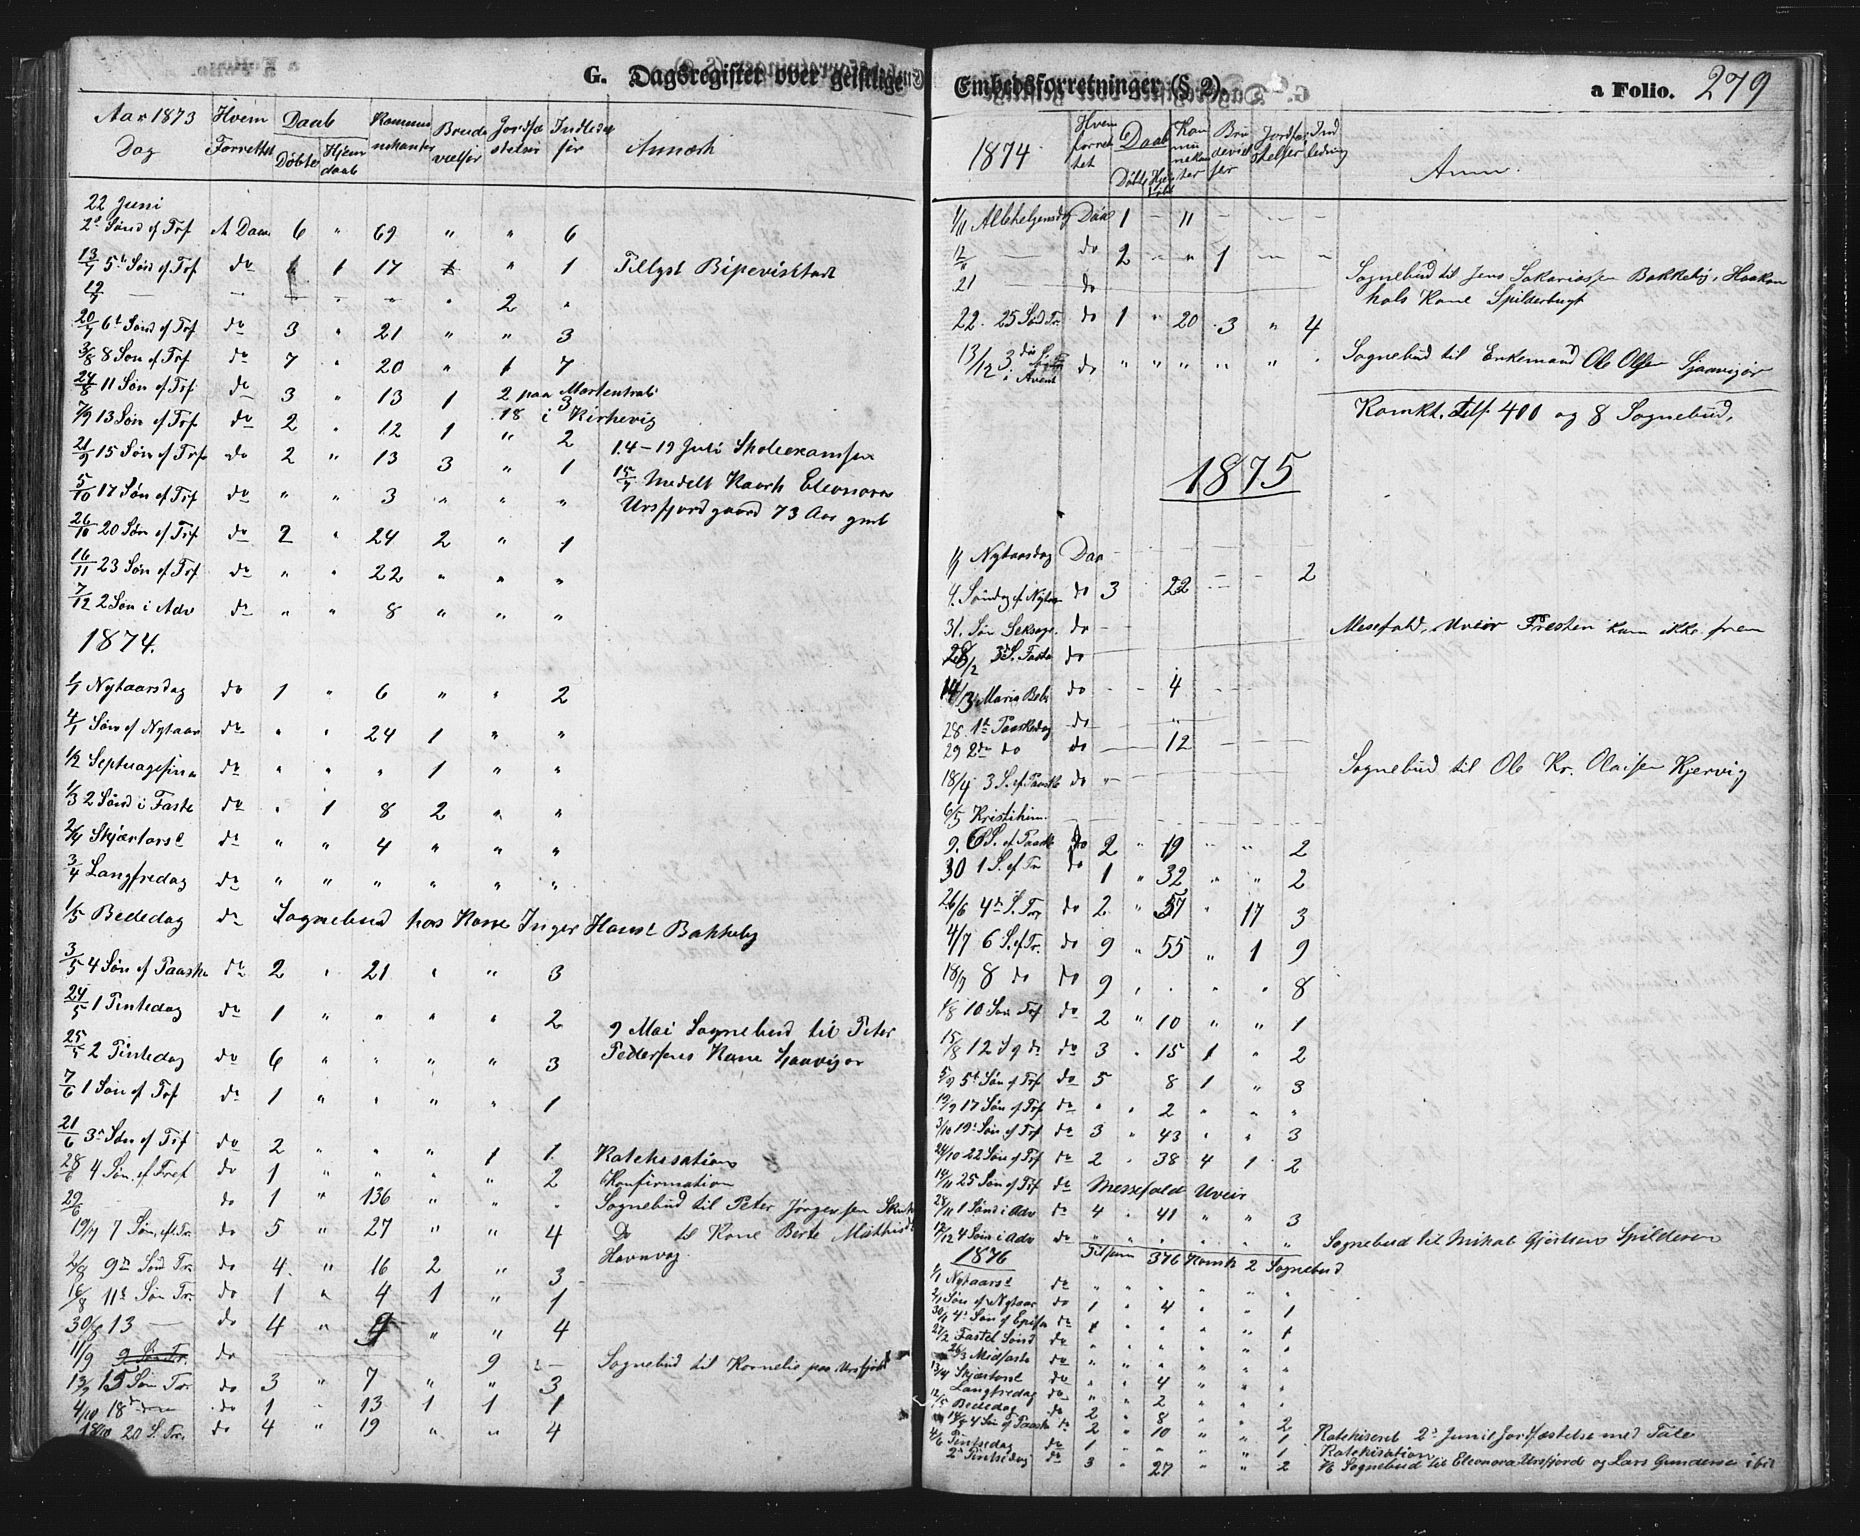 G. Dagsregister over geistlige
Aar 1873 Hvem Daab Kommu Brude Jordfæ Indledel
Dag Forrettet Døbte Hjem nikanter vielser stelser ser Anmærk
daab
22 Juni
2d Sønd ef Trf A Daae 6 " 69 " " 6
13/7 5te Sønd ef Trf do 1 1 17 " 1 Tillyst Bispevisitads
19/7 — — 2 "
20/7 6t Sønd ef Trf do 3 " 21 " " 3
3/8 8 Søn ef Trf do 7 " 20 " 1 7
24/8 11 Søn ef Trf do 3 " 13 1 2 paa 3
7/9 13 Søn ef Trf do 2 " 12 1 18 i Kirkevig
" 2
21/9 15 Søn ef Trf do 2 " 13 3 " 1 14-19 Juli Skoleexamen
5/10 17 Søn ef Trf do " " 3 " " " 15/7 Medelt Eleonora
Ursfjord 73 Aar gml
26/10 20 Søn ef Trf do 2 " 24 2 " 1
16/11 23 Søn ef Trf do " " 22 " " "
7/12 2 Søn i Adv do " " 8 " " "
1874.
1/1 Nytaarsdag do 1 " 6 " " 2
4/1 Søn ef Nytaar do " " 24 1 " "
1/2 Septuagesima do " " " 1 " "
1/3 2 Sønd i Faste do " 1 8 2 " "
2/4 Skjærtorsd do " " 4 " " "
3/4 Langfredag do " " " " " "
1/5 Bededag do Sognebud hos Kone Inger Hansd Bakkeby
3/5 4 Søn ef Paaske do 2 " 21 " " 3
24/5 1 Pintsedag do 1 " " " " 2 9 Mai Sognebud til Peter
25/5 2 Pintsedag do 6 " " " " 3 Pedersens Kone Sjaavigor
7/6 1 Søn ef Trf do 1 " " " " 1
21/6 3e Søn ef Trf do 2 " " " 1 1. Katekisation
28/6 4 Søn. ef Tref do 1 " " " " 2 Konfirmation
29/6 do 1 " 136 " " " Sognebud til Peter Jørgensen
19/7 7 Søn. ef Tr. do 5 " 27 " " 4 Do til Kone Berte
2/8 9de Sønd Tr. do 4. " 16 2 " 3 Havnvag
16/8 11te Søn Tr. do 1 " 4 1 " 1
30/8 13 — do 4 " 4 " " 4
11/9 9 Søn Tr. do 9 — Sognebud til Kornelie paa Ursfjord
13/9 15 Søn Tr. do 3 " 7 " " 3
4/10 18de do 1 " 13 1 1 1
18/10 20 S. Tr. do 4 " 19 " " 4
Embedsforretninger (§ 2). a Folio. 279
1874 Hvem Daab Kom Bru Jordfæ Ind
forret mu devid stelser ledning Anm.
tet Døbte Hjem nikan ser
ter
1/11 Allehelgensdag Daae 1 - 11 - - -
do 2 " " 1 - "
21 — do Sognebud til Jens Sakariassen Bakkeby, Haakon
hols Kone Spilderbugt
22. 25 Sød Tr. do 1 " 20 3 " 4
13/12 3. S. do " " " " " " Sognebud til Enkemand Ole Olsen Sjaavigor
i Avent
Komkt. Tils 400 og 8 Sognebud.
1875
1/1 Nytaarsdag Daa - - - - 2
4. Søndag ef Nytaar do 3 22 - -
31. Søn Seksage. do - Messefald, Uveir Presten kom ikke frem
28/2 3 S. Faste do
14/3 Maria Beb. do - - 4 - -
28. 1te Paaskedag do - - "
29 2den do do — 12
18/4 3 S. ef Paaske do " Sognebud til Ole Kr. Olaisen Kjervig
6/5 Kristihim.
9. 6 S. ef Paaske do 2 " 19 " " 2
30 1 S. ef Tr do 1 " 32 " " 2
26/6 4de S. Tr. do 2 " 37 " 17 3
4/7 6 S. ef Tr. do 9 " 55 " 1 9
18/7 8 do do 9 " " " " 8
1/8 10 Søn Trf do 2 " 10 " " 1
15/8 12 S do 3 " 15 1 " 2
5/9 5t Søn ef Trf do 5 8 1 " 3
19/9 17 Søn ef Trf do " " 2 " " "
3/10 19e Søn ef Trf do 3 " 43 " " 3
24/10 22 Søn ef Trf do 2 " 38 4 1 2
14/11 25 Søn ef Trf do Messefald Uveir
28/11 1 Sønd i Adv do 4 " 41 " " 3
12/12 4 Søn i Adv do " " " " " " Sognebud til Mikal Gjertsen Spilderen
1876 Tilsam 376 Komk 2 Sognebud
1/1 Nytaarsd do " " " " " "
2/1 Søn ef Nytaar do 1 " 4 " " 1
30/1 4e Søn ef Epifa do 1 " " " " 1
27/2 Fastel Sønd do " " " " " "
26/3 Midfaste do " " " " " "
13/4 Skjærtorsd do " " 4 " " "
Langfredag do " " 2 " "
12/5 Bededag do 2 " 8 " " 2
14/5 4 Søn ef Paaske do 2 " 10 " " 1 Katekiseret 2e Juni Jordfæstelse med Tale
4/6 Pintsedag do 1 " " " " 1 Katekisation
2e Pintsedag do 3 " 27 " " 2 Sognebud til Eleonora Ursfjord og Lars Gundersen